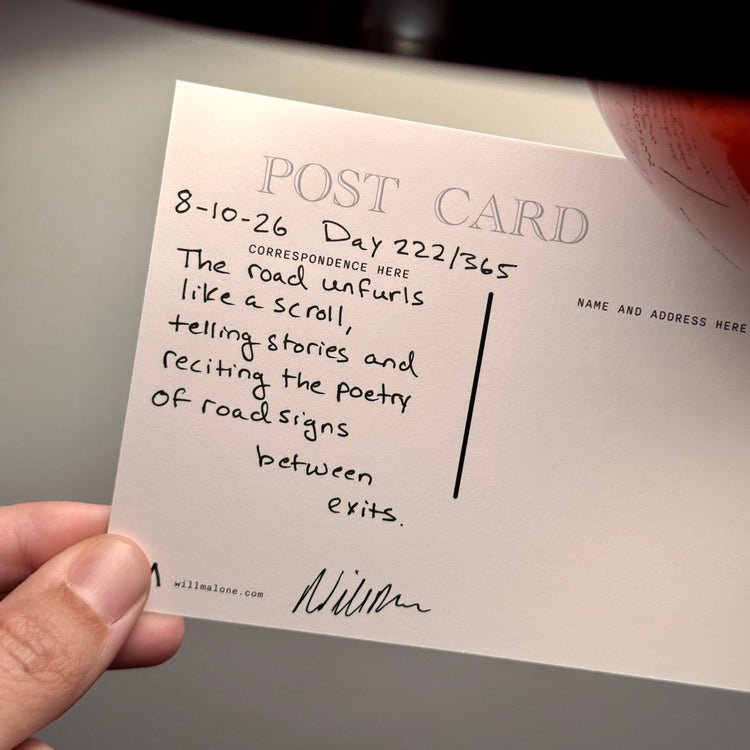 POST CARD
8-10-26 Day 222/365
CORRESPONDENCE HERE
The road unfurls
like a scroll,
telling stories and
reciting the poetry
of road signs
between
exits.
NAME AND ADDRESS HERE
willmalone.com